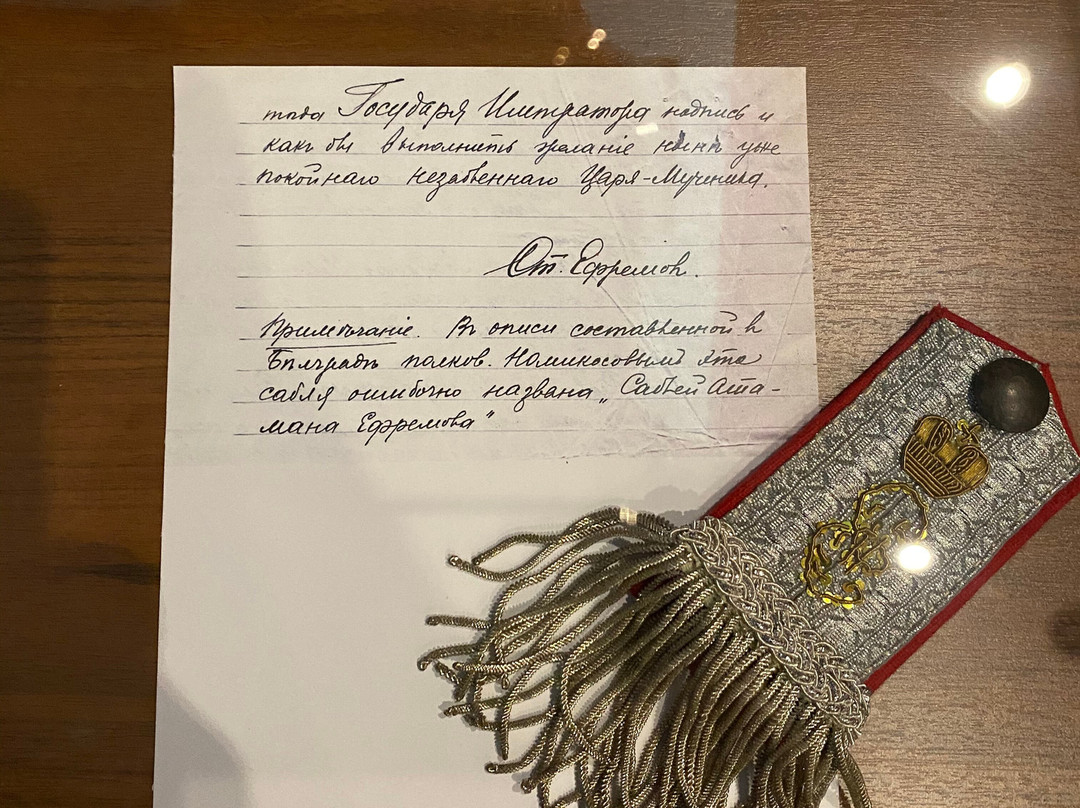 тода Государя Императора надпись и
какъ бы выполнить желаніе нынѣ уже
покойнаго незабвеннаго Царя-Мученика.
Ст. Ефремов.
Примѣчаніе. Въ описи составленной в
Бѣлградѣ полков. Номикосовымъ эта
сабля ошибочно названа „Саблей Ата-
мана Ефремова"